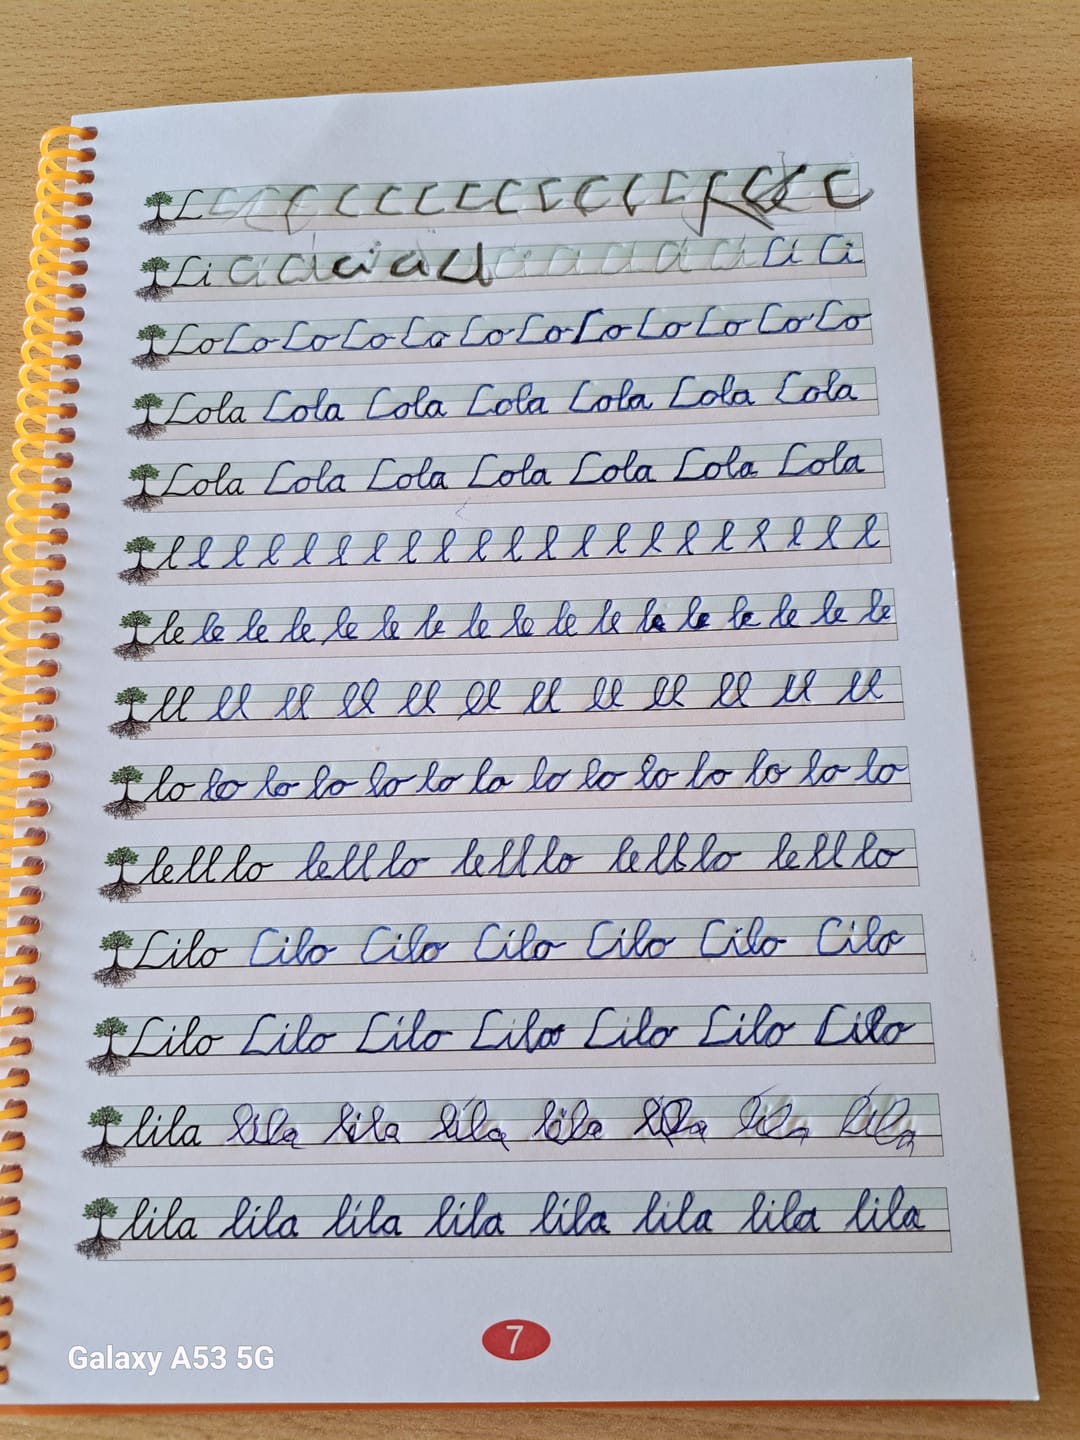 L C C C C C C C C C C C C C C C C
Li Ci Ci Ci Ci Ci Ci Ci Ci Ci Ci Ci Ci
Lo Lo Lo Lo Lo Lo Lo Lo Lo Lo Lo Lo
Lola Lola Lola Lola Lola Lola Lola
Lola Lola Lola Lola Lola Lola Lola
l l l l l l l l l l l l l l l l l l l l l
le le le le le le le le le le le le le le le le le
ll ll ll ll ll ll ll ll ll ll ll ll
lo lo lo lo lo lo lo lo lo lo lo lo lo lo
le ll lo le ll lo le ll lo le ll lo le ll lo
Lilo Lilo Lilo Lilo Lilo Lilo Lilo
Lilo Lilo Lilo Lilo Lilo Lilo Lilo
lila lila lila lila lila lila lila lila
lila lila lila lila lila lila lila lila
7
Galaxy A53 5G